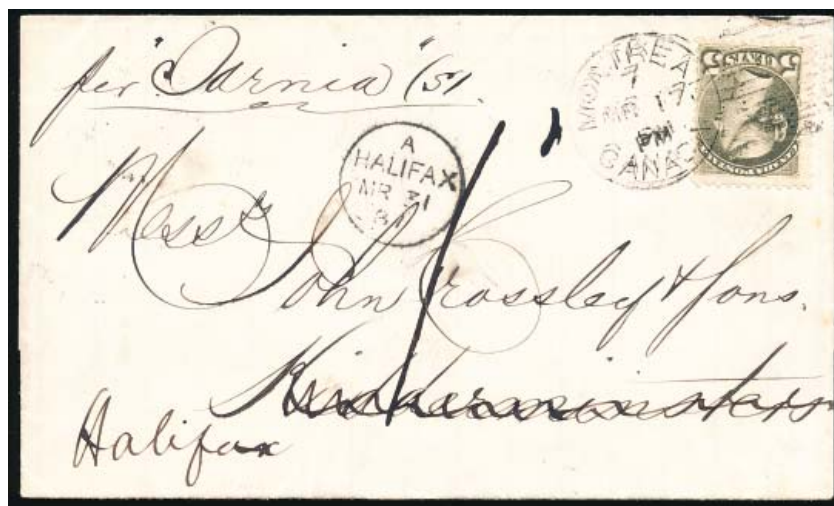 per "Sarnia" (s)
MONTREAL
7
MR 17
PM
CANADA
5 CENTS 5
A
HALIFAX
MR 31
81
Messrs
John Crossley & Sons.
Kidderminster
Halifax